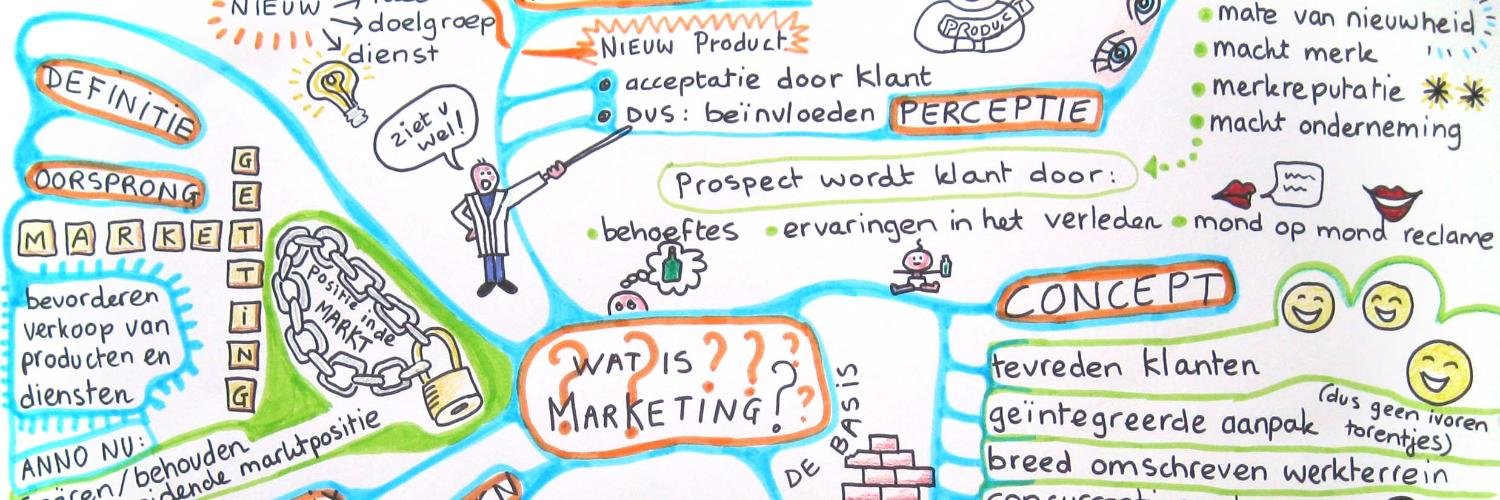 NIEUW
doelgroep
dienst
DEFINITIE
OORSPRONG
MARKET
GETTING
bevorderen
verkoop van
producten en
diensten
ANNO NU:
/behouden
marktpositie
positie in de
MARKT
ziet u
wel!
NIEUW Product
• acceptatie door klant
• DUS: beïnvloeden PERCEPTIE
PRODUCT
• mate van nieuwheid
• macht merk
• merkreputatie
• macht onderneming
Prospect wordt klant door:
• behoeftes • ervaringen in het verleden • mond op mond reclame
WAT IS ???
MARKETING?
DE BASIS
CONCEPT
tevreden klanten
geïntegreerde aanpak (dus geen ivoren
torentjes)
breed omschreven werkterrein